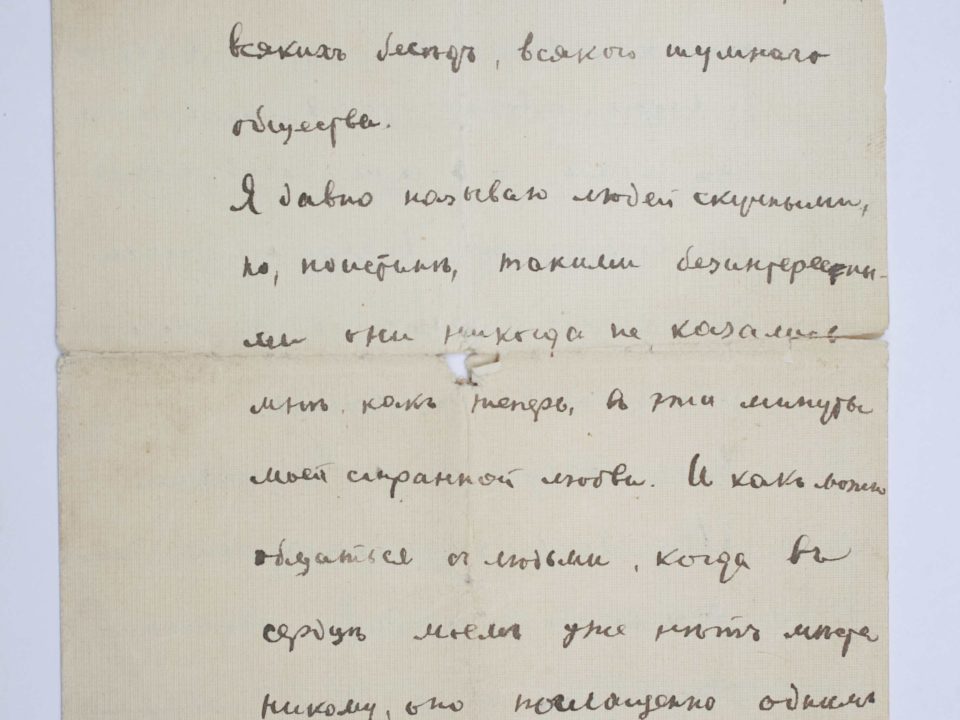 всякихъ бесѣдъ, всякого шумнаго
общества.
Я давно называю людей скучными,
но, поистинѣ, такими безинтересны-
ми они никогда не казались
мнѣ, какъ теперь, въ эти минуты
моей странной любви. И какъ можно
общаться съ людьми, когда въ
сердцѣ моемъ уже нѣтъ мѣста
никому, оно поглащенно однимъ